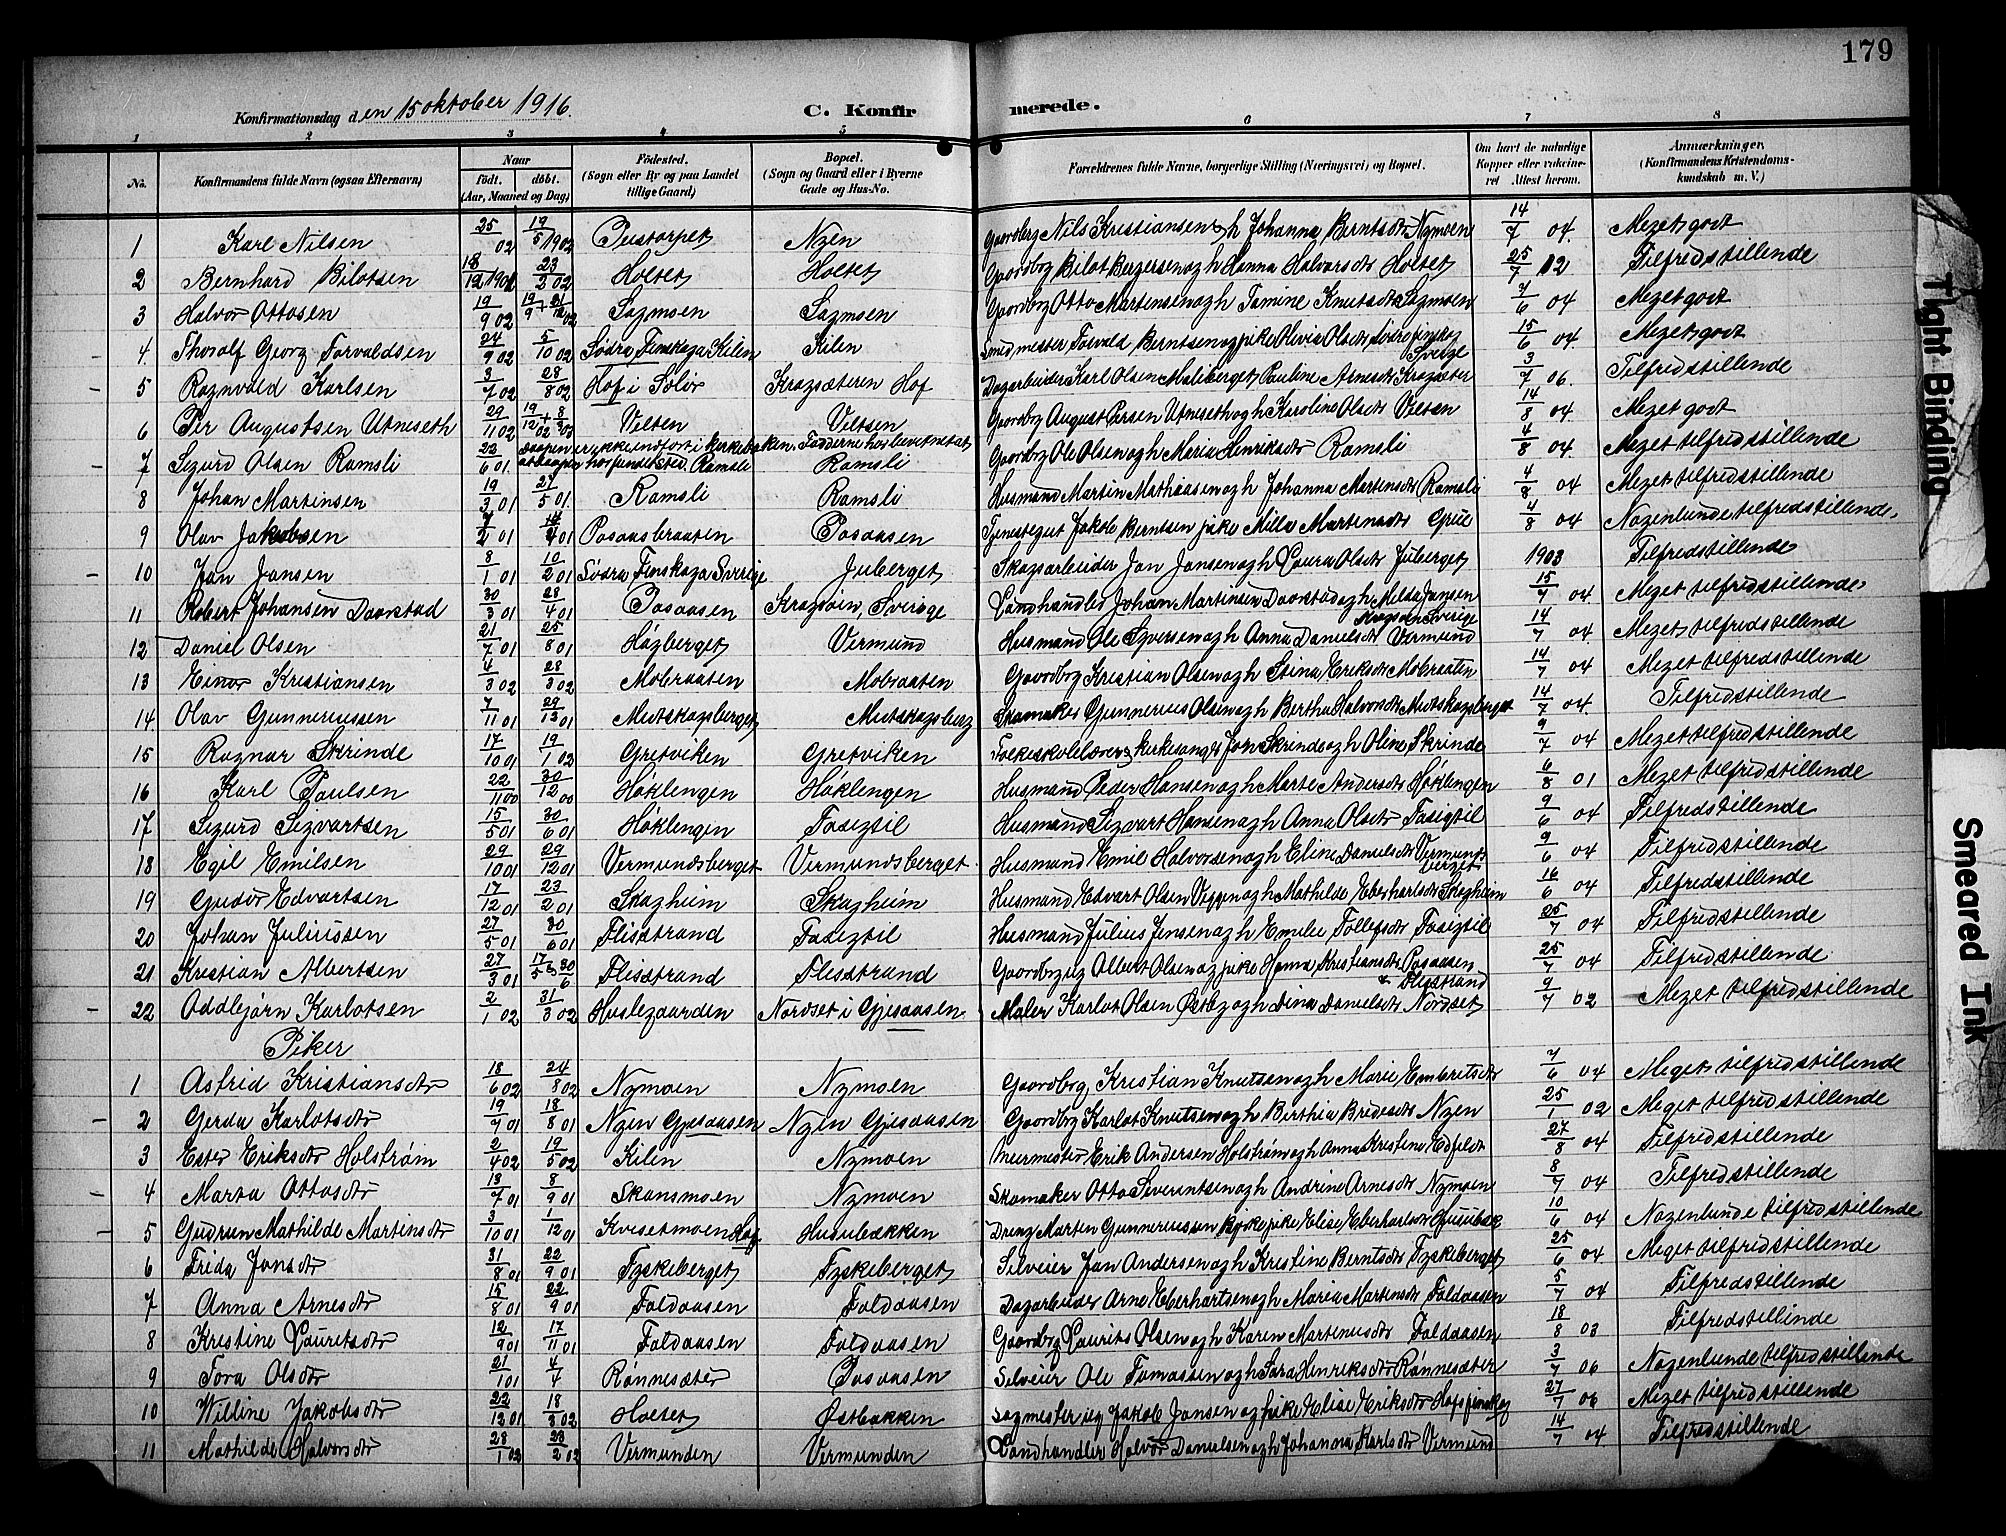 179
Konfirmationsdag den 15 oktober 1916.
C. Konfirmerede.
1 2 3 4 5 6 7 8
No. Konfirmandens fulde Navn (ogsaa Efternavn) Naar født. døbt. (Aar, Maaned og Dag) Fødested. (Sogn eller By og paa Landet tillige Gaard) Bopæl. (Sogn og Gaard eller i Byerne Gade og Hus-No. Forældrenes fulde Navne, borgerlige Stilling (Næringsvei) og Bopæl. Om havt de naturlige Kopper eller vakcineret Attest herom. Anmærkninger. (Konfirmandens Kristendomskundskab m. V.)
1 Karl Nilsen 25/ 02 19/5 1902 Nyen Gaardbrg Nils Kristiansen h Johanna Berntsdtr Nymoen 14/7 04. Meget godt
2 Bernhard Bilotsen 18/12 1901 23/2 02 Holtet Holtet Gaardbrg Bilot Bergersen og h Hanna Halvorsdtr Holtet 25/7 12 Tilfredstillende
3 Halvor Ottosen 19/9 02 Sagmoen Sagmoen Gaardbrg Otto Martensen og h Tomine Knutsdtr Sagmoen 7/6 04 Meget godt
4. Thoralf Georg Torvaldsen 24/9 02 5/10 02 Södra Finskoga Kilen Kilen Smidmester Torvald Berntsen og pike Olsdtr Sverge 15/6 04. Meget godt
5 Ragnvald Karlsen 3/7 02 28/8 02 Hof i Solör Kragsæteren Hof Dagarbeider Karl Olsen Maliberget Pauline Arnesdtr Kragsæter 3/7 06. Tilfredstillende
6 Per Augustsen Utneseth 29/11 02 Velten Veltsen Gaardbrg August Persen Utneseth og h Karoline Olsdtr Velten 14/8 04. Meget godt
7 Sigurd Olsen Ramsli 23/6 01 Daapen er ikke indført i kirkeboken. Fadderne har bevitnet at daapen har fundet sted. Ramsli Ramsli Gaardbrg Ole Olsen og h Maria Henriksdtr Ramsli 4/8 04 Meget tilfredstillende
8 Johan Martinsen 19/3 01 27/5 01 Ramsli Ramsli Husmand Martin Mathiasen og h Johanna Martensdtr Ramsli 4/8 04 Meget tilfredstillende
9 Olav Jakobsen 7/2 01 14/4 01 Posaasbraaten Posaasen Tjenestegut Jakob Berntsen pike Milla Martensdtr Grue 4/8 04 Nogenlunde tilfredstillende.
10 Jan Jansen 8/1 01 10/2 01 Södra Finskoga Sverige Juberget Skogsarbeider Jan Jansen og h Laura Olsdtr Juberget 1903 Tilfredstillende
11 Robert Johansen Daarstad 30/3 01 28/4 01 Posaasen Kragsöen, Sverige Landhandler Johan Martinsen Daarstad og h Milda Jansen Kragsöen Sverige 15/7 04 Meget tilfredstillende
12 Daniel Olsen 21/7 01 25/8 01 Høgberget Vermund Husmand Ole Syversen og h Anna Danielsdtr Vermund 14/7 04. Meget tilfredstillende
13 Einar Kristiansen 4/3 02 28/3 02 Mobraaten Mobraaten Gaardbrg Kristian Olsen og h Stina Eriksdtr Mobraaten 14/7 04 Meget tilfredstillende
14. Olav Gunneriussen 7/11 01 29/13 01 Mutskagsberget Mutskagsberg Skomaker Gunnerius Olsen og h Bertha Halvorsdtr Mutskagsberget 14/7 04. Tilfredstillende
15 Ragnar Skrinde 17/10 01 19/1 02 Gretviken Gretviken Folkeskolelærer & kirkesanger Jon Skrinde og h Oline Skrinde 9/7 04 Meget tilfredstillende
16 Karl Paulsen 22/11 00 30/12 00 Høklengen Høklengen Husmand Peder Hansen og h Marte Andersdtr Høklengen 6/8 01 Meget tilfredstillende
17 Sigurd Sigvartsen 15/5 01 30/6 01 Høklengen Fasigtil Husmand Sigvart Hansen og h Anna Olsdtr Fasigtil 9/6 04 Tilfredstillende
18 Egil Emilsen 29/10 01 29/12 01 Vermundsberget Vermundsberget Husmand Emil Halvorsen og h Eline Danielsdtr Vermundsberget 9/6 04 Tilfredstillende
19 Gudor Edvartsen 17/12 01 23/2 01 Skagheim Skagheim Husmand Edvart Olsen Viggen og h Mathilde Eberhartsdtr Skogheim 16/6 04 Tilfredstillende
20 Johan Juliussen 27/5 01 30/6 01 Flisstrand Fasigtil Husmand Julius Jensen og h Emelie Tollefsdtr Fasigtil 25/7 04 Tilfredstillende
21 Kristian Albertsen 27/3 01 Flisstrand Flisstrand Gaardbrg Albert Olsen og pike Hanna Kristiansdtr Posaasen Flisstrand 25/7 04 Tilfredstillende
22 Oddbjørn Karlotsen 2/1 02 31/3 02 Huslegaarden Nordset i Gjesaasen Maler Karlot Olsen Østby og h Dina Danielsdtr Nordset 9/7 02 Meget tilfredstillende
Piker
1 Astrid Kristiansdtr 18/6 02 24/8 02 Nymoen Nymoen Gaardbrg Kristian Knutsen og h Marie Embretsdtr 7/6 04 Meget tilfredstillende
2 Gerda Karlotsdtr 19/7 01 18/8 01 Nyen Gjesaasen Nyen Gjesaasen Gaardbrg Karlot Knutsen og h Berthia Bredesdtr Nyen 25/1 02 Meget tilfredstillende
3 Ester Eriksdtr Holstrøm 2/4 02 19/5 02 Kilen Nymoen Murmester Erik Andersen Holstrøm og h Anna Kristine Edfeldt 27/8 04 Tilfredstillende
4 Marta Ottosdtr 13/7 01 8/9 01 Skansmoen Nymoen Skomaker Otto Severintsen og h Andrine Arnesdtr Nymoen 8/7 04 Tilfredstillende
5 Gudrun Mathilde Martinsdtr 3/10 01 1/12 01 Kvisetmoen Hof Husubakken Dreng Marten Gunneriussen pike Elise Eberhartsdtr 10/6 04 Nogenlunde tilfredstillende
6 Frida Jansdtr 31/8 01 22/9 01 Fyskeberget Fyskeberget Selveier Jan Andersen og h Kristine Berntsdtr Fyskeberget 25/6 04 Meget tilfredstillende
7 Anna Arnesdtr 15/8 01 22/9 01 Faldaasen Faldaasen Dagarbeider Arne Eberhartsen og h Maria Martensdtr Faldaasen 5/7 04 Tilfredstillende
8 Kristine Lauritsdtr 12/9 01 17/11 01 Faldaasen Faldaasen Gaardbrg Laurits Olsen og h Karen Martinusdtr Faldaasen 18/8 03 Tilfredstillende
9 Tora Olsdtr 21/1 01 4/7 Rönnesæter Posaasen Selveier Ole Tomassen og h Sara Henriksdtr Rönnesæter 3/7 06 Nogenlunde tilfredstillende
10 Willine Jakobsdtr 22/12 01 18/3 02 Holtet Østbakken Sagmester Jakob Jansen og pike Elise Eriksdtr Hofsfinskog 27/7 06 Meget tilfredstillende
11 Mathilde Halvorsdtr 28/1 02 23/2 02 Vermunden Vermunden Landhandler Halvor Danielsen og h Johanna Karlsdtr Vermund 14/7 04 Tilfredstillende
Tight Binding
Smeared Ink